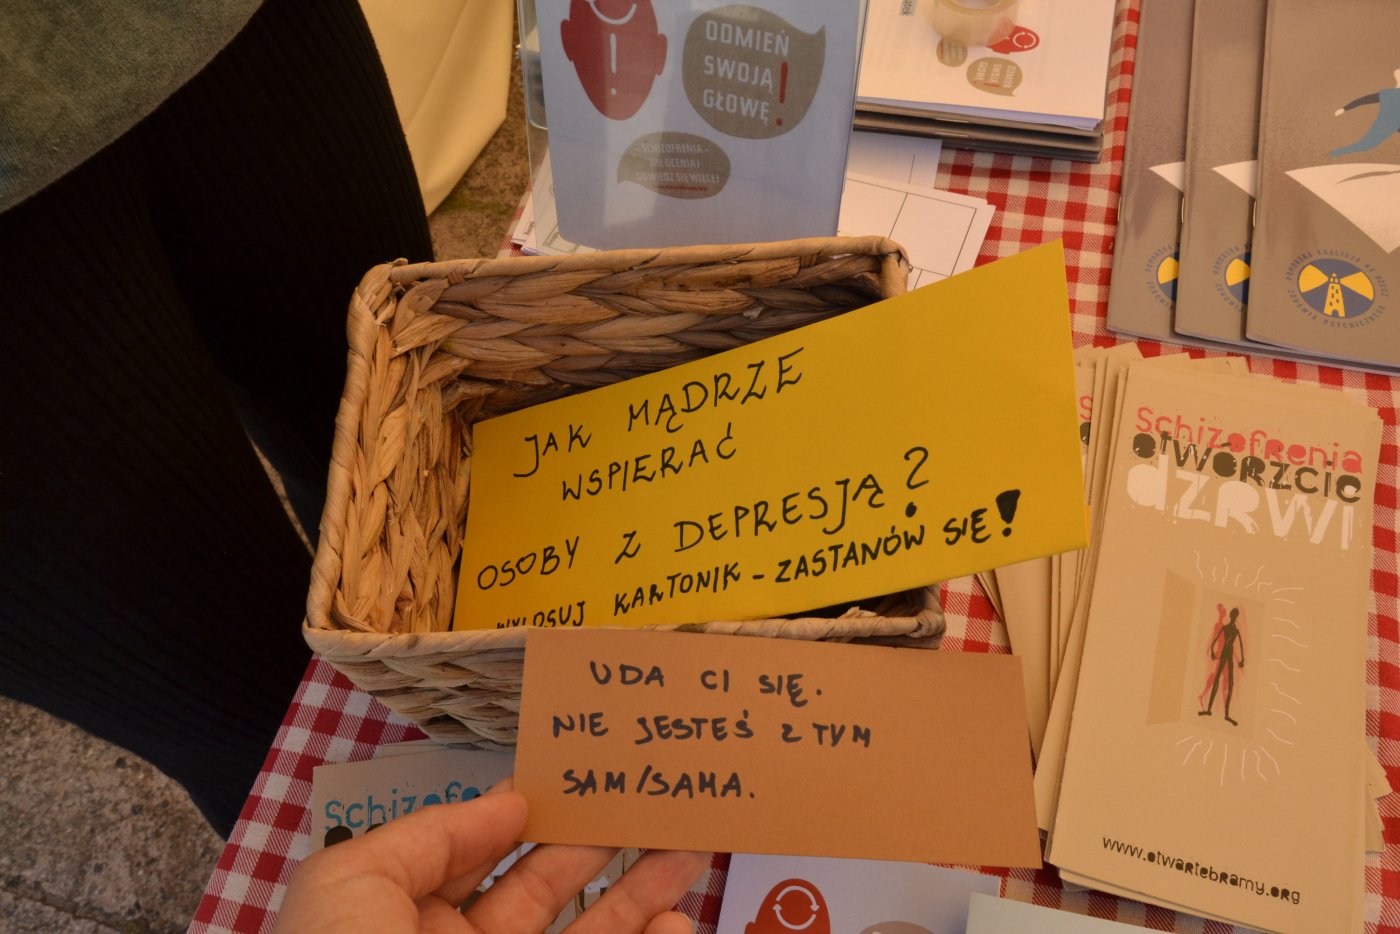 ODMIEŃ
SWOJĄ
GŁOWĘ!
- SCHIZOFRENIA -
NIE OCENIAJ
DOWIEDZ SIĘ WIĘCEJ
ODMIEŃ
SWOJĄ
GŁOWĘ!
JAK MĄDRZE
WSPIERAĆ
OSOBY Z DEPRESJĄ?
WYLOSUJ KARTONIK - ZASTANÓW SIĘ!
UDA CI SIĘ.
NIE JESTEŚ Z TYM
SAM/SAMA.
Schizofrenia
OTWÓRZCIE
DZRWI
www.otwartebramy.org